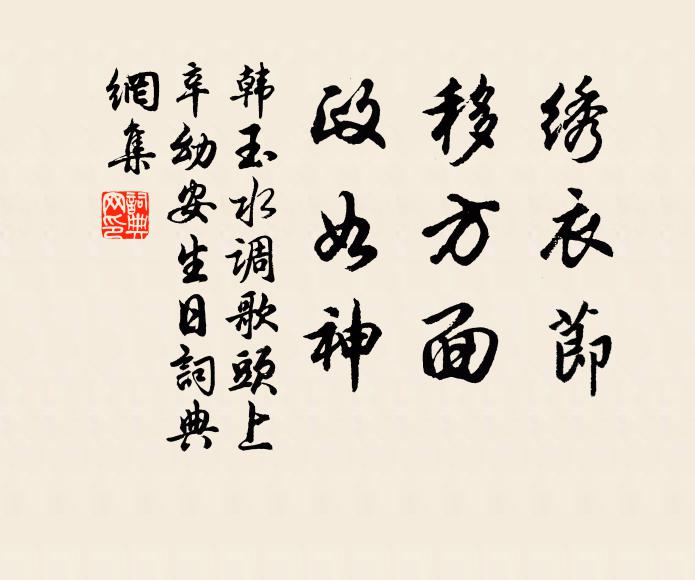 绣衣節
移方面
政如神
韩玉水调歌頭上
辛幼安生日詞典
網集
詞典
网印